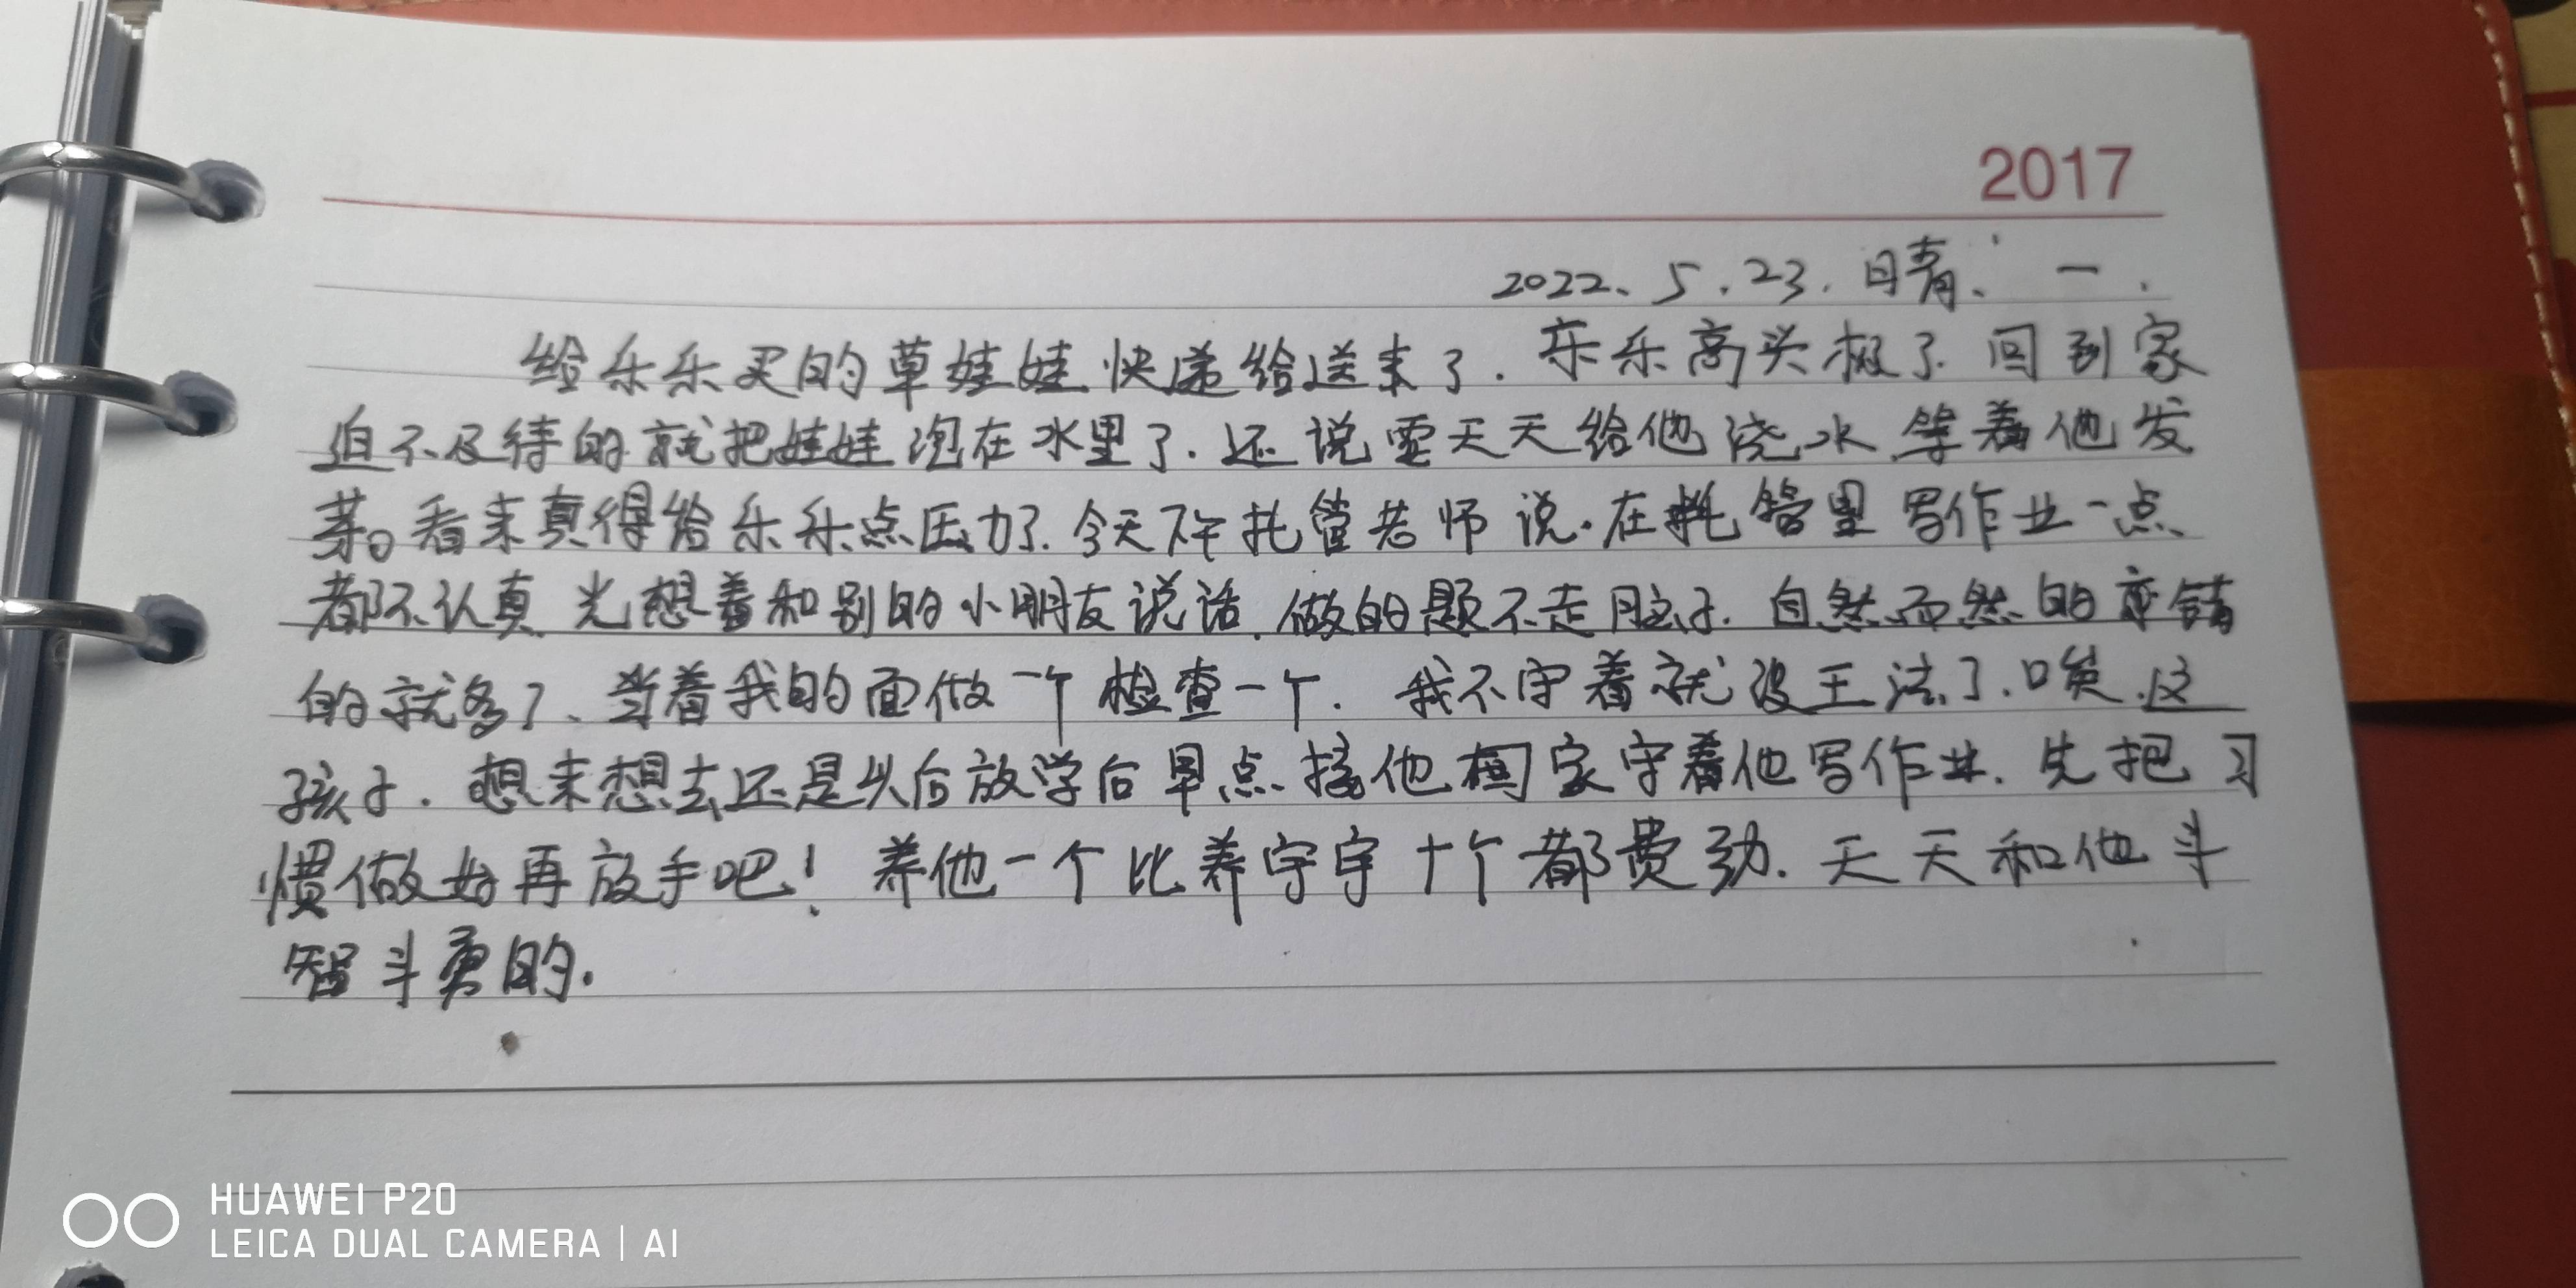 2017
2022、5.23.晴、一.
给乐乐买的草娃娃快递给送来了.乐乐高兴极了.回到家
迫不及待的就把娃娃泡在水里了.还说要天天给他浇水.等着他发
芽。看来真得给乐乐点压力了.今天下午托管老师说.在托管里写作业一点
都不认真.光想着和别的小朋友说话.做的题不走脑子.自然而然的 错
的就多了、当着我的面做一个检查一个.我不守着就没王法了.唉.这
孩子.想来想去还是以后放学后早点接他回家守着他写作业.先把习
惯做好再放手吧!养他一个比养宇宇十个都费劲.天天和他斗
智斗勇的.
HUAWEI P20
LEICA DUAL CAMERA | AI